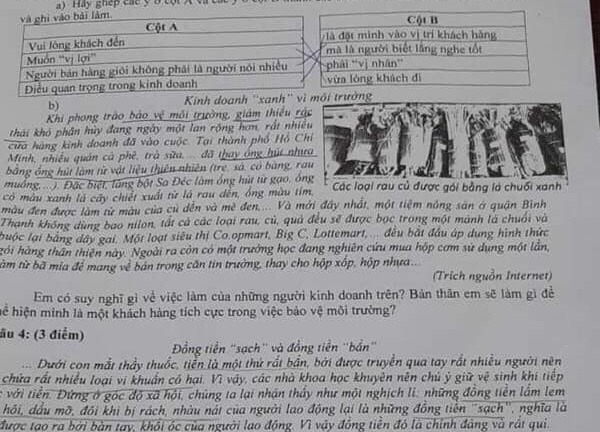 a) Hãy ghép các ý ở cột A và các ý ở cột
và ghi vào bài làm.
Cột A
Cột B
Vui lòng khách đến
Muốn “vị lợi”
Người bán hàng giỏi không phải là người nói nhiều
Điều quan trọng trong kinh doanh
là đặt mình vào vị trí khách hàng
mà là người biết lắng nghe tốt
phải “vị nhân”
vừa lòng khách đi
b)
Kinh doanh “xanh” vì môi trường
Khi phong trào bảo vệ môi trường, giảm thiểu rác
thải khó phân hủy đang ngày một lan rộng hơn, rất nhiều
cửa hàng kinh doanh đã vào cuộc. Tại thành phố Hồ Chí
Minh, nhiều quán cà phê, trà sữa,... đã thay ống hút nhựa
bằng ống hút làm từ vật liệu thiên nhiên (tre, sả, cỏ bàng, rau
muống,...). Đặc biệt, làng bột Sa Đéc làm ống hút từ gạo, ống
có màu xanh lá cây chiết xuất từ lá rau dền, ống màu tím,
màu đen được làm từ màu của củ dền và mè đen,... Và mới đây nhất, một tiệm nông sản ở quận Bình
Thạnh không dùng bao nilon, tất cả các loại rau, củ, quả đều sẽ được bọc trong một mảnh lá chuối và
buộc lại bằng dây gai. Một loạt siêu thị Co.opmart, Big C, Lottemart,... đều bắt đầu áp dụng hình thức
gói hàng thân thiện này. Ngoài ra còn có một trường học đang nghiên cứu mua hộp cơm sử dụng một lần,
làm từ bã mía để mang về bán trong căn tin trường, thay cho hộp xốp, hộp nhựa...
Các loại rau củ được gói bằng lá chuối xanh
(Trích nguồn Internet)
Em có suy nghĩ gì về việc làm của những người kinh doanh trên? Bản thân em sẽ làm gì để
hể hiện mình là một khách hàng tích cực trong việc bảo vệ môi trường?
âu 4: (3 điểm)
Đồng tiền “sạch” và đồng tiền “bẩn”
... Dưới con mắt thầy thuốc, tiền là một thứ rất bẩn, bởi được truyền qua tay rất nhiều người nên
chứa rất nhiều loại vi khuẩn có hại. Vì vậy, các nhà khoa học khuyên nên chú ý giữ vệ sinh khi tiếp
với tiền. Đứng ở góc độ xã hội, chúng ta lại nhận thấy một nghịch lí: những đồng tiền lấm lem
hôi, dầu mỡ, đôi khi bị rách, nhàu nát của người lao động lại là những đồng tiền “sạch”, nghĩa là
được tạo ra bởi bàn tay, khối óc của người lao động. Vì vậy đồng tiền đó là chính đáng và rất quí.